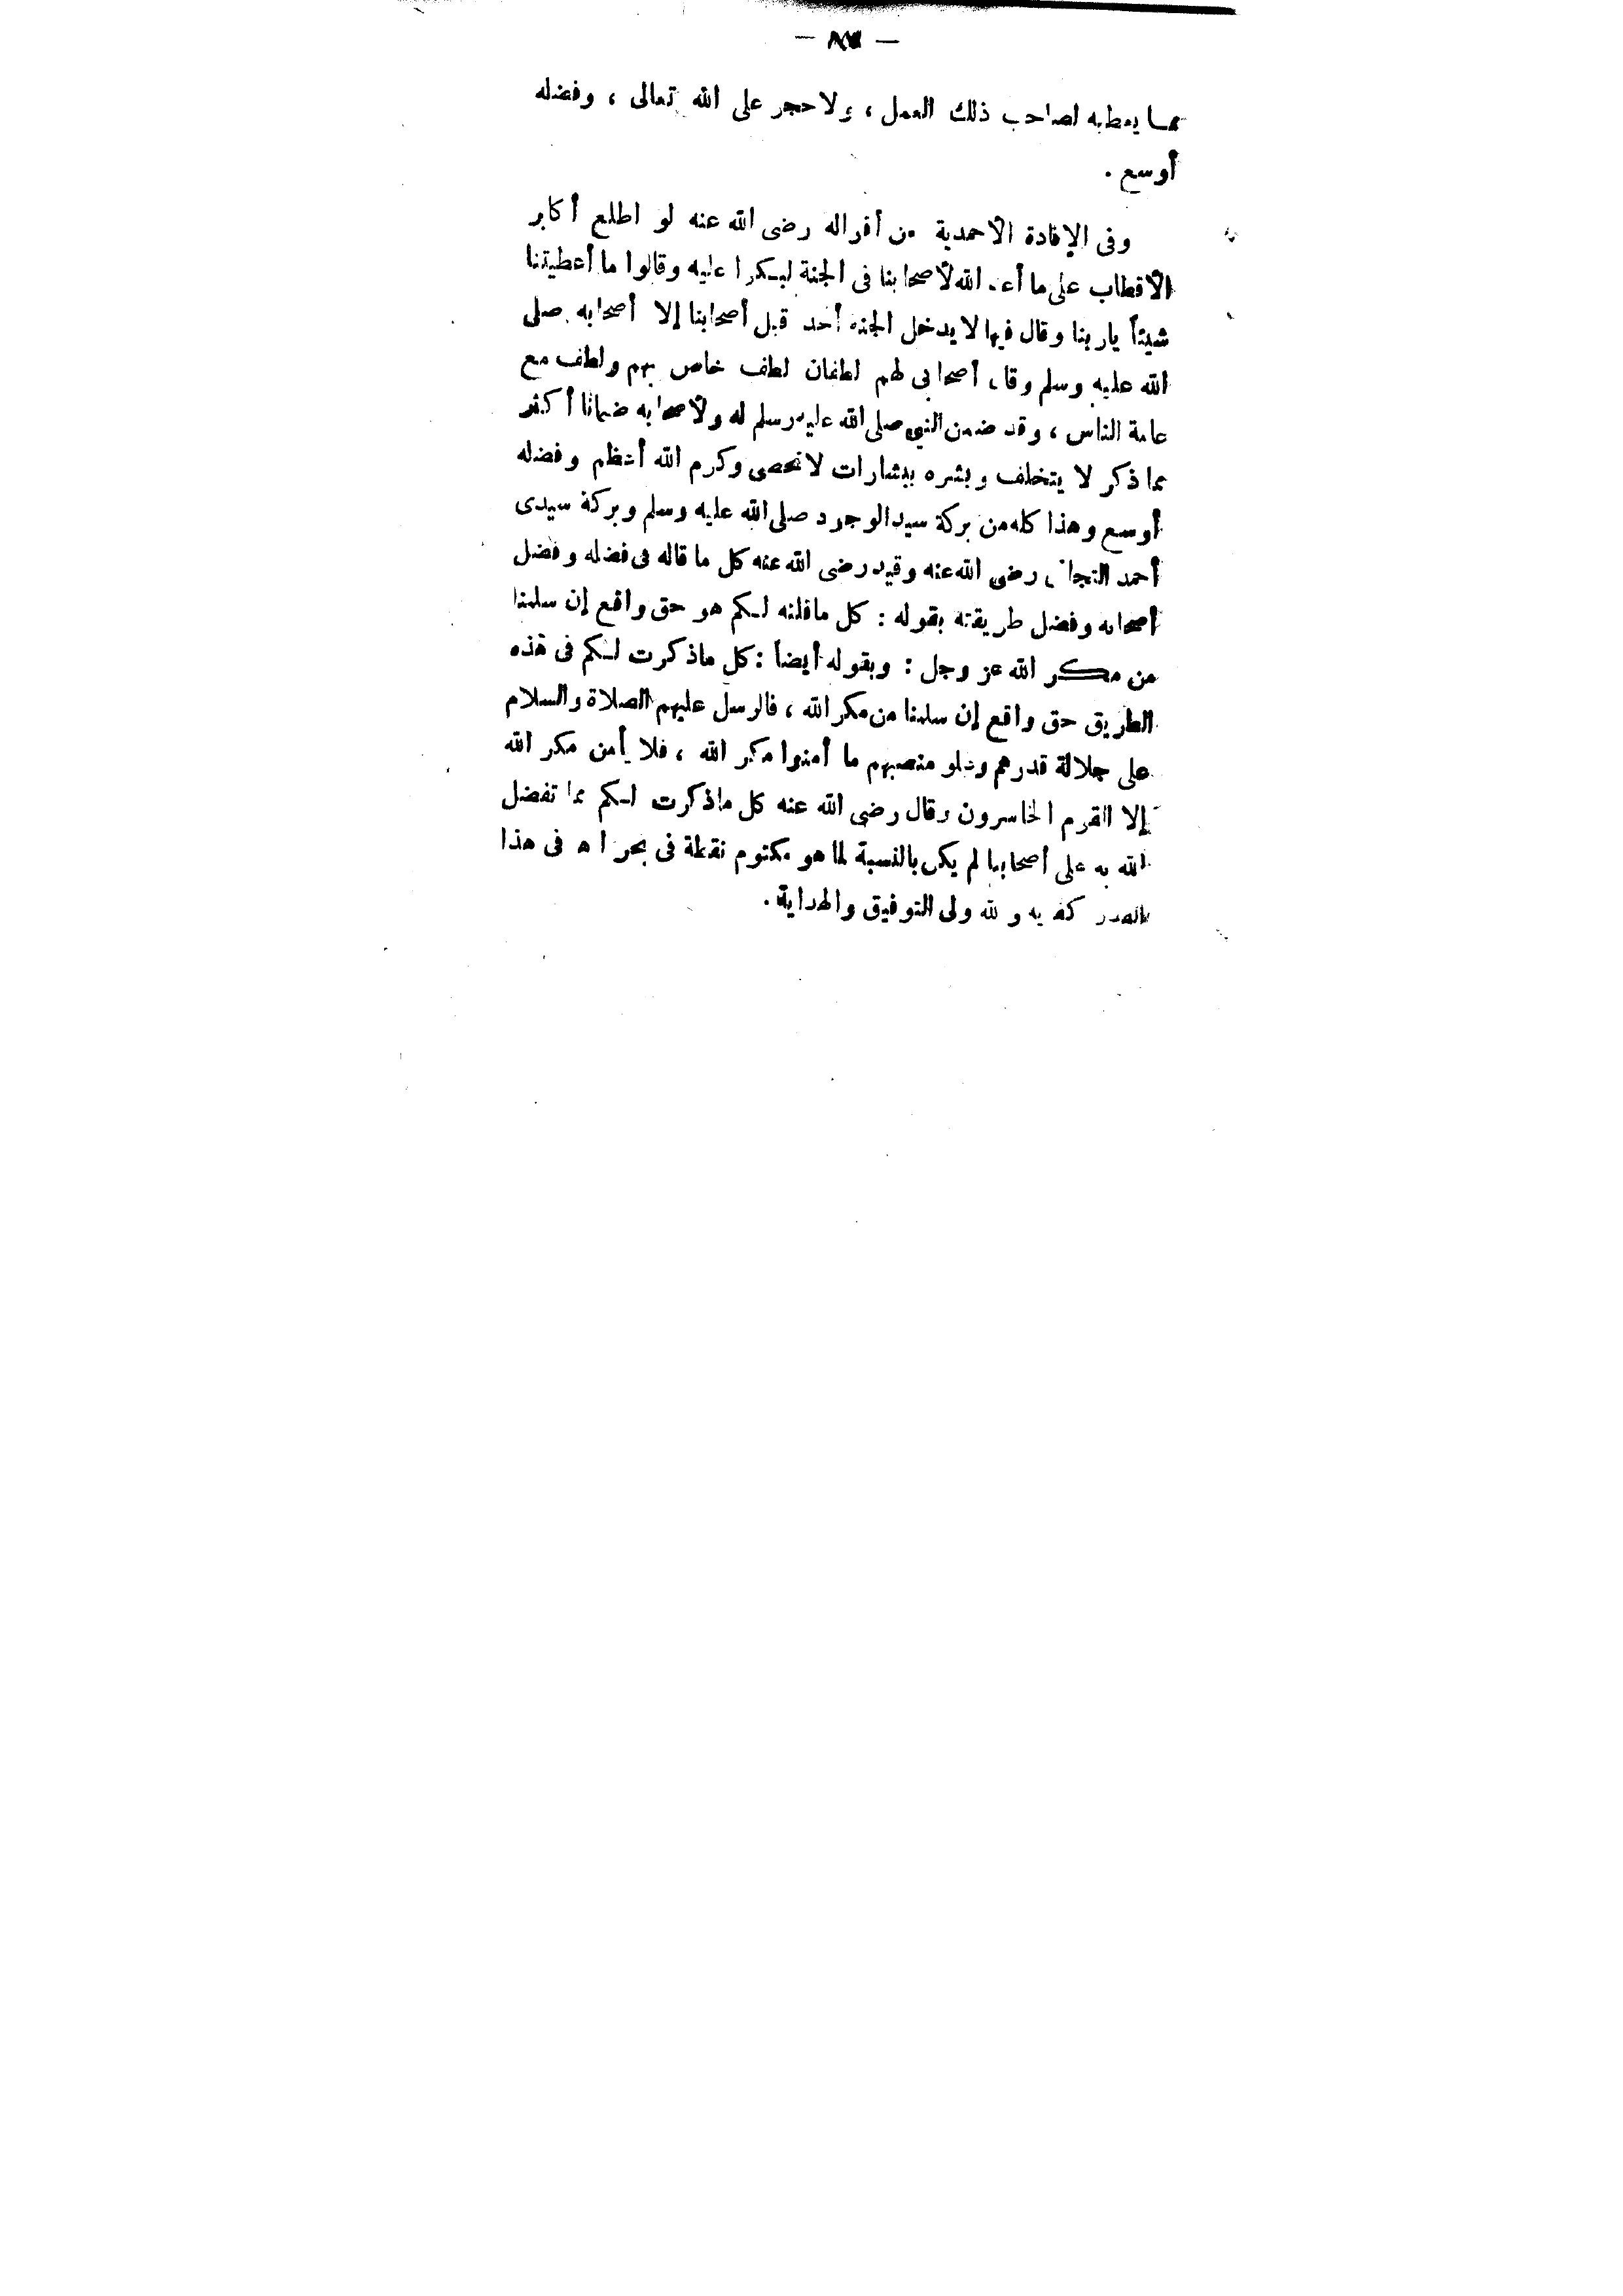 — ٨٧ —
مما يعطيه لصاحب ذلك العمل ، ولا حجر على الله تعالى ، وفضله
أوسع .
وفى الإفادة الأحمدية من أقواله رضى الله عنه لو اطلع أكابر
الأقطاب على ما أعد الله لأصحابنا فى الجنة لبكوا عليه وقالوا ما أعطيتنا
شيئاً ياربنا وقال فيها لا يدخل الجنة أحد قبل أصحابنا إلا أصحابه صلى
الله عليه وسلم وقال أصحابى لهم لطفان لطف خاص بهم ولطف مع
عامة الناس ، وقد ضمن النبي صلى الله عليه وسلم له ولأصحابه ضمانا أكثر
مما ذكر لا يتخلف وبشره ببشارات لا تحصى وكرم الله أعظم وفضله
أوسع وهذا كله من بركة سيد الوجود صلى الله عليه وسلم وبركة سيدى
أحمد التجانى رضى الله عنه وقيد رضى الله عنه كل ما قاله فى فضله وفضل
أصحابه وفضل طريقته بقوله : كل ما قلته لكم هو حق واقع إن سلمنا
من مكر الله عز وجل : وبقوله أيضاً : كل ماذكرت لكم فى هذه
الطريق حق واقع إن سلمنا من مكر الله ، فالرسل عليهم الصلاة والسلام
على جلالة قدرهم وعلو منصبهم ما أمنوا مكر الله ، فلا يأمن مكر الله
إلا القوم الخاسرون وقال رضى الله عنه كل ماذكرت لكم مما تفضل
الله به على أصحابنا لم يكن بالنسبة لما هو مكتوم نقطة فى بحر ا ه فى هذا
القدر كفاية والله ولى التوفيق والهداية .